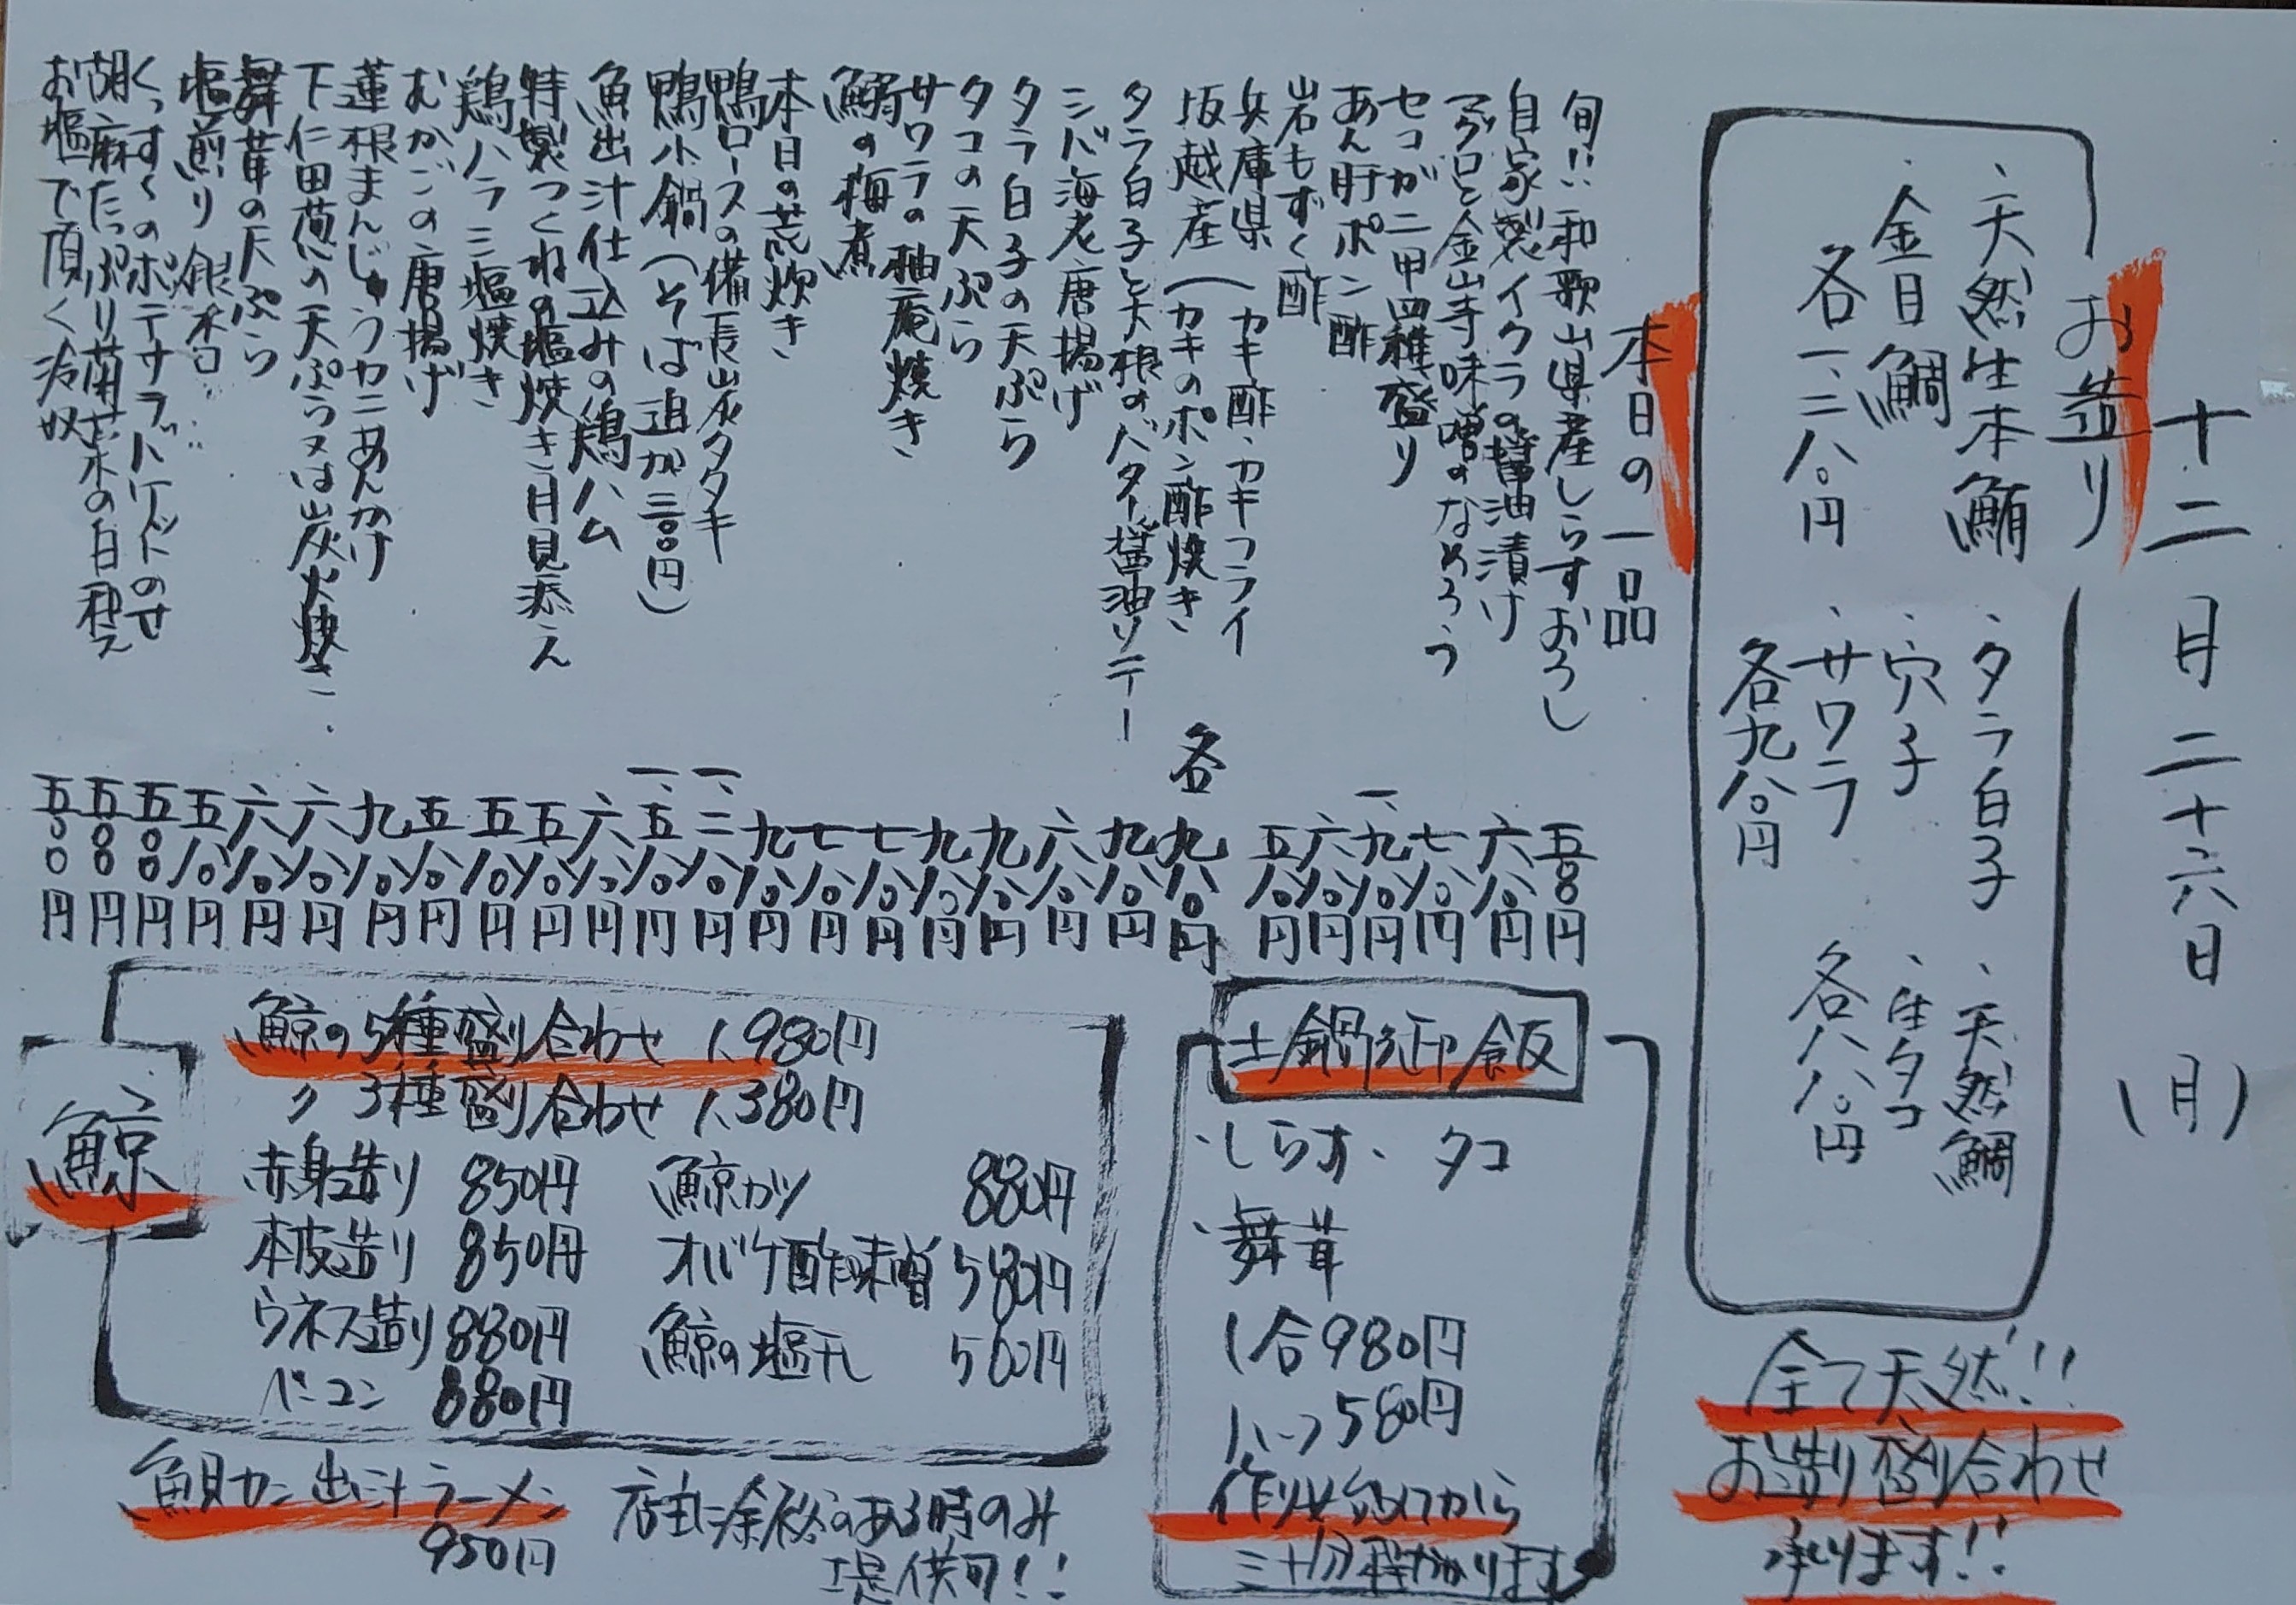 十二月二十六日(月)
お造り
・天然生本鮪
・金目鯛
各一、二八〇円
・タラ白子
・穴子
・サワラ
各九八〇円
・天然鯛
・生タコ
各八八〇円
全て天然!!
お造り盛り合わせ
承ります!!
本日の一品
旬!!和歌山県産しらすおろし 五〇〇円
自家製イクラの醤油漬け 六八〇円
マグロと金山寺味噌のなめろう 七八〇円
セコガニ甲四種盛り 一、九八〇円
あん肝ポン酢 六八〇円
岩もずく酢 五八〇円
兵庫県(カキ酢・カキフライ
坂越産(カキのポン酢焼き 各九八〇円
タラ白子と大根のバター醤油ソテー 九八〇円
シバ海老唐揚げ 六八〇円
タラ白子の天ぷら 九八〇円
タコの天ぷら 九八〇円
サワラの柚庵焼き 七八〇円
鰯の梅煮 七八〇円
本日の荒炊き 九八〇円
鴨ロースの備長炭タタキ 一、二八〇円
鴨小鍋(そば追加三〇〇円) 一、五八〇円
魚出汁仕込みの鶏ハム 六八〇円
特製つくねの塩焼き月見添え 五八〇円
鶏ハラミ塩焼き 五八〇円
むかごの唐揚げ 五八〇円
蓮根まんじゅうカニあんかけ 九八〇円
下仁田葱の天ぷら又は炭火焼き 六八〇円
舞茸の天ぷら 六八〇円
塩煎り銀杏 五八〇円
くっすくのポテサラバゲットのせ 五〇〇円
胡麻たっぷり菊菜の白和え 五〇〇円
お塩で頂く冷奴 五〇〇円
土鍋御飯
・しらす・タコ
・舞茸
1合980円
ハーフ580円
作り始めてから
三十分程かかります
鯨
鯨の5種盛り合わせ 1,980円
〃 3種盛り合わせ 1,380円
赤身造り 850円
本皮造り 850円
ウネス造り 880円
ベーコン 880円
鯨カツ 880円
オバケ酢味噌 580円
鯨の塩干し 500円
魚貝カニ出汁ラーメン
950円
店主に余裕のある時のみ
提供可!!